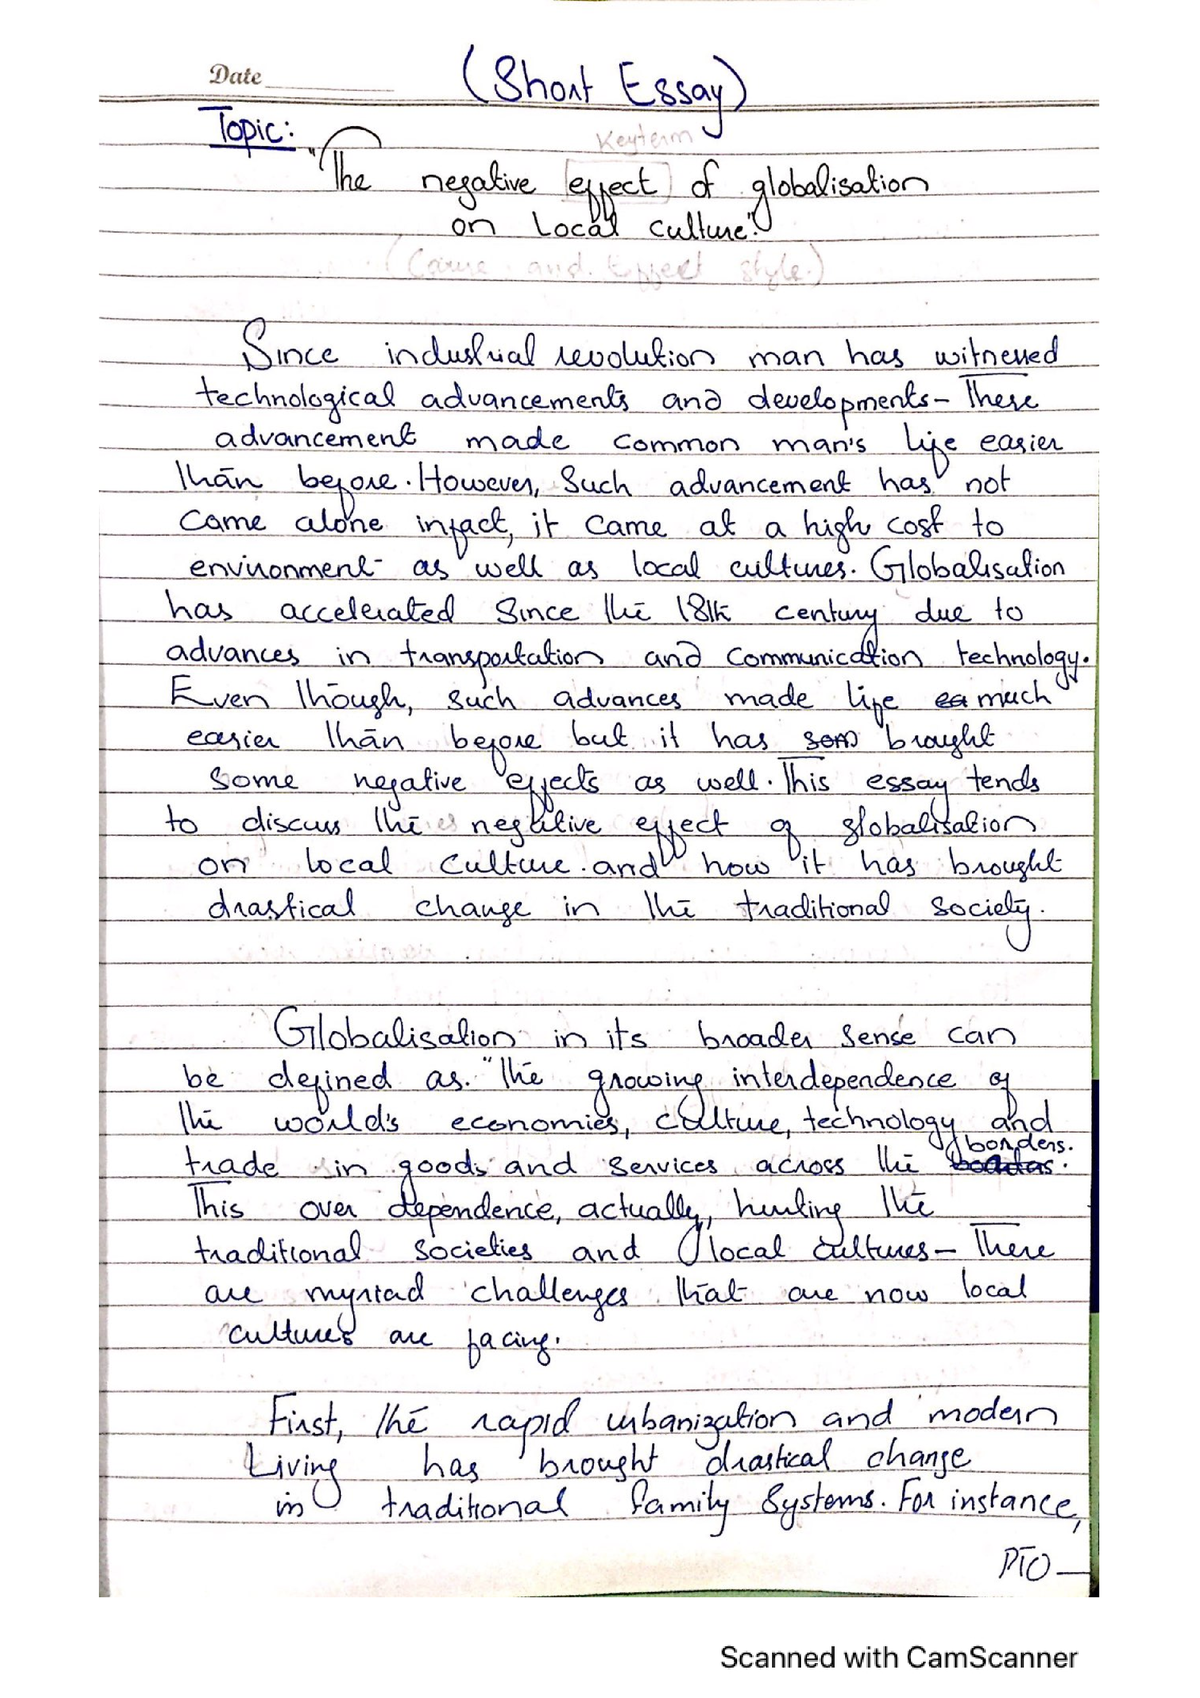 Date
(Short Essay)
Topic:
Keyterm
"The negative effect of globalisation
on Local culture".
(Cause and Effect style.)
Since industrial revolution man has witnessed
technological advancements and developments- These
advancement made common man's life easier
than before. However, Such advancement has not
came alone infact, it came at a high cost to
environment as well as local cultures. Globalisation
has accelerated Since the 18th century due to
advances in transportation and communication technology.
Even though, such advances made life ea much
easier than before but it has som brought
some negative effects as well. This essay tends
to discuss the negative effect of globalisation
on local culture and how it has brought
drastical change in the traditional society.
Globalisation in its broader sense can
be defined as. "the growing interdependence of
the world's economies, culture, technology and
trade in goods and services across the borders.
This over dependence, actually, hurting the
traditional societies and local cultures- There
are myriad challenges that are now local
cultures are facing.
First, the rapid urbanization and modern
Living has brought drastical change
in traditional family Systems. For instance,
PTO-
Scanned with CamScanner